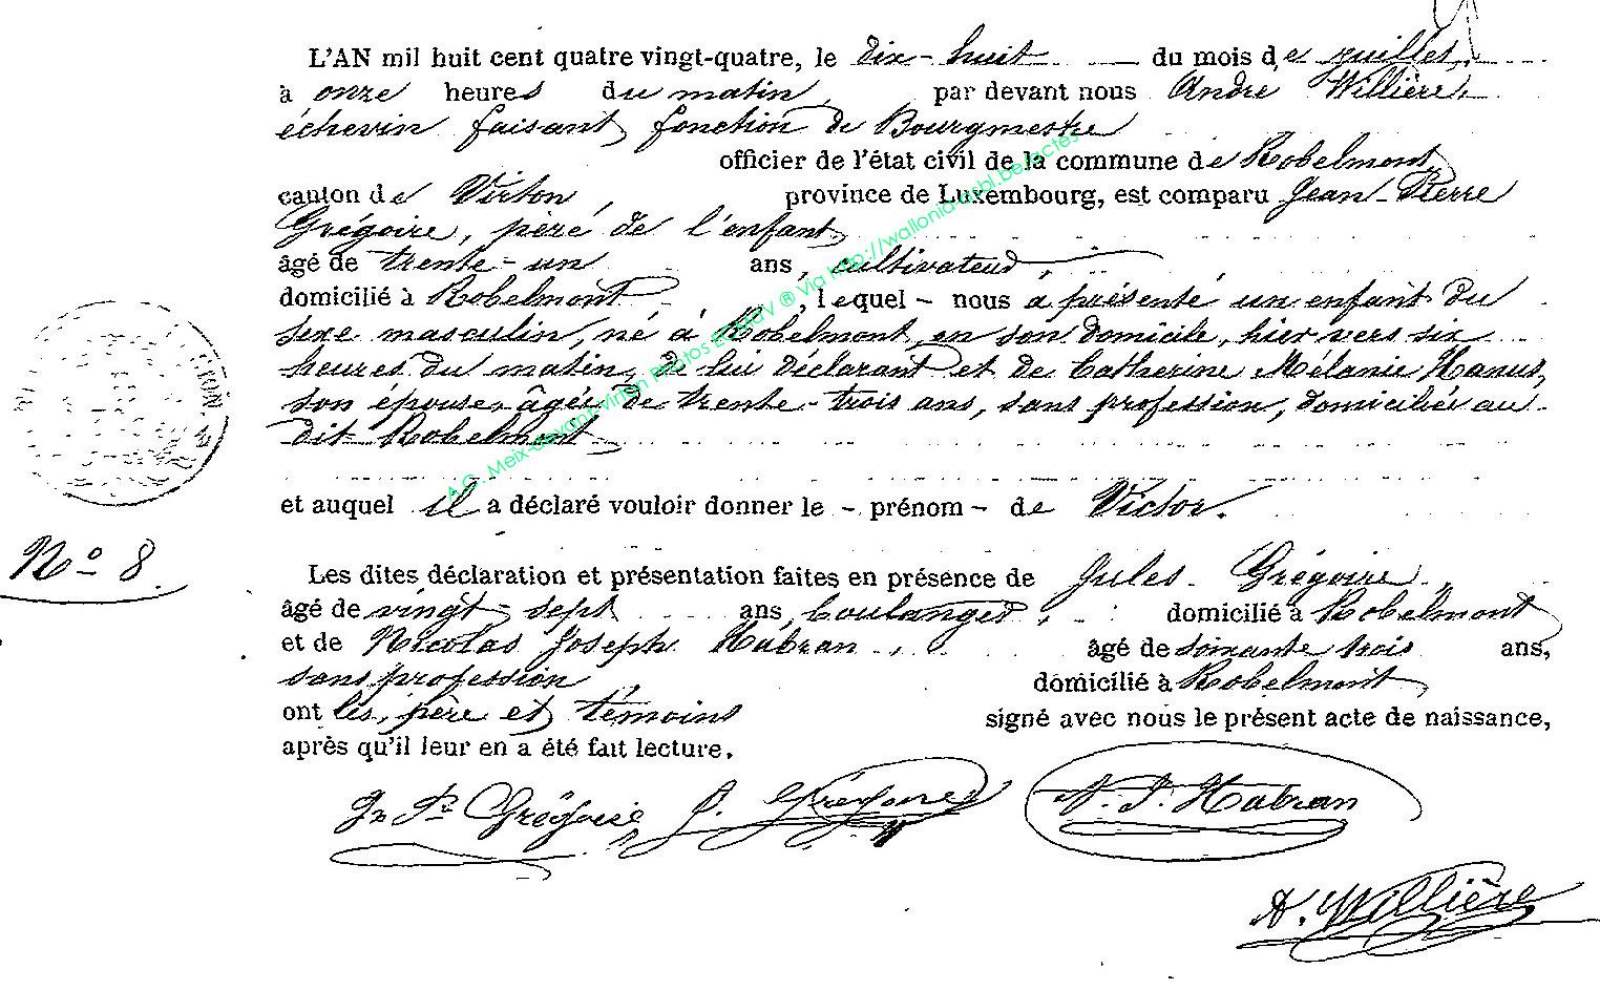 L'AN mil huit cent quatre vingt-quatre, le dix-huit du mois de juillet,
à onze heures du matin, par devant nous André Willière,
échevin faisant fonction de Bourgmestre
officier de l'état civil de la commune de Robelmont
canton de Virton, province de Luxembourg, est comparu Jean-Pierre
Grégoire, père de l'enfant
âgé de trente-un ans, cultivateur,
domicilié à Robelmont, lequel - nous a présenté un enfant du
sexe masculin, né à Robelmont, en son domicile, hier vers six
heures du matin, de lui déclarant et de Catherine Mélanie Hanus,
son épouse, âgée de trente-trois ans, sans profession, domiciliée au
dit Robelmont
et auquel il a déclaré vouloir donner le - prénom - de Victor.
N° 8.
Les dites déclaration et présentation faites en présence de Jules Grégoire,
âgé de vingt-sept ans, boulanger, domicilié à Robelmont
et de Nicolas Joseph Habran, âgé de soixante trois ans,
sans profession, domicilié à Robelmont
ont les, père et témoins signé avec nous le présent acte de naissance,
après qu'il leur en a été fait lecture.
Jn Pre Grégoire J. Grégoire N. J. Habran
A. Willière
A.G. Meix-devant-Virton Photos EGMGV ® Via http://wallonia-asbl.be/actes